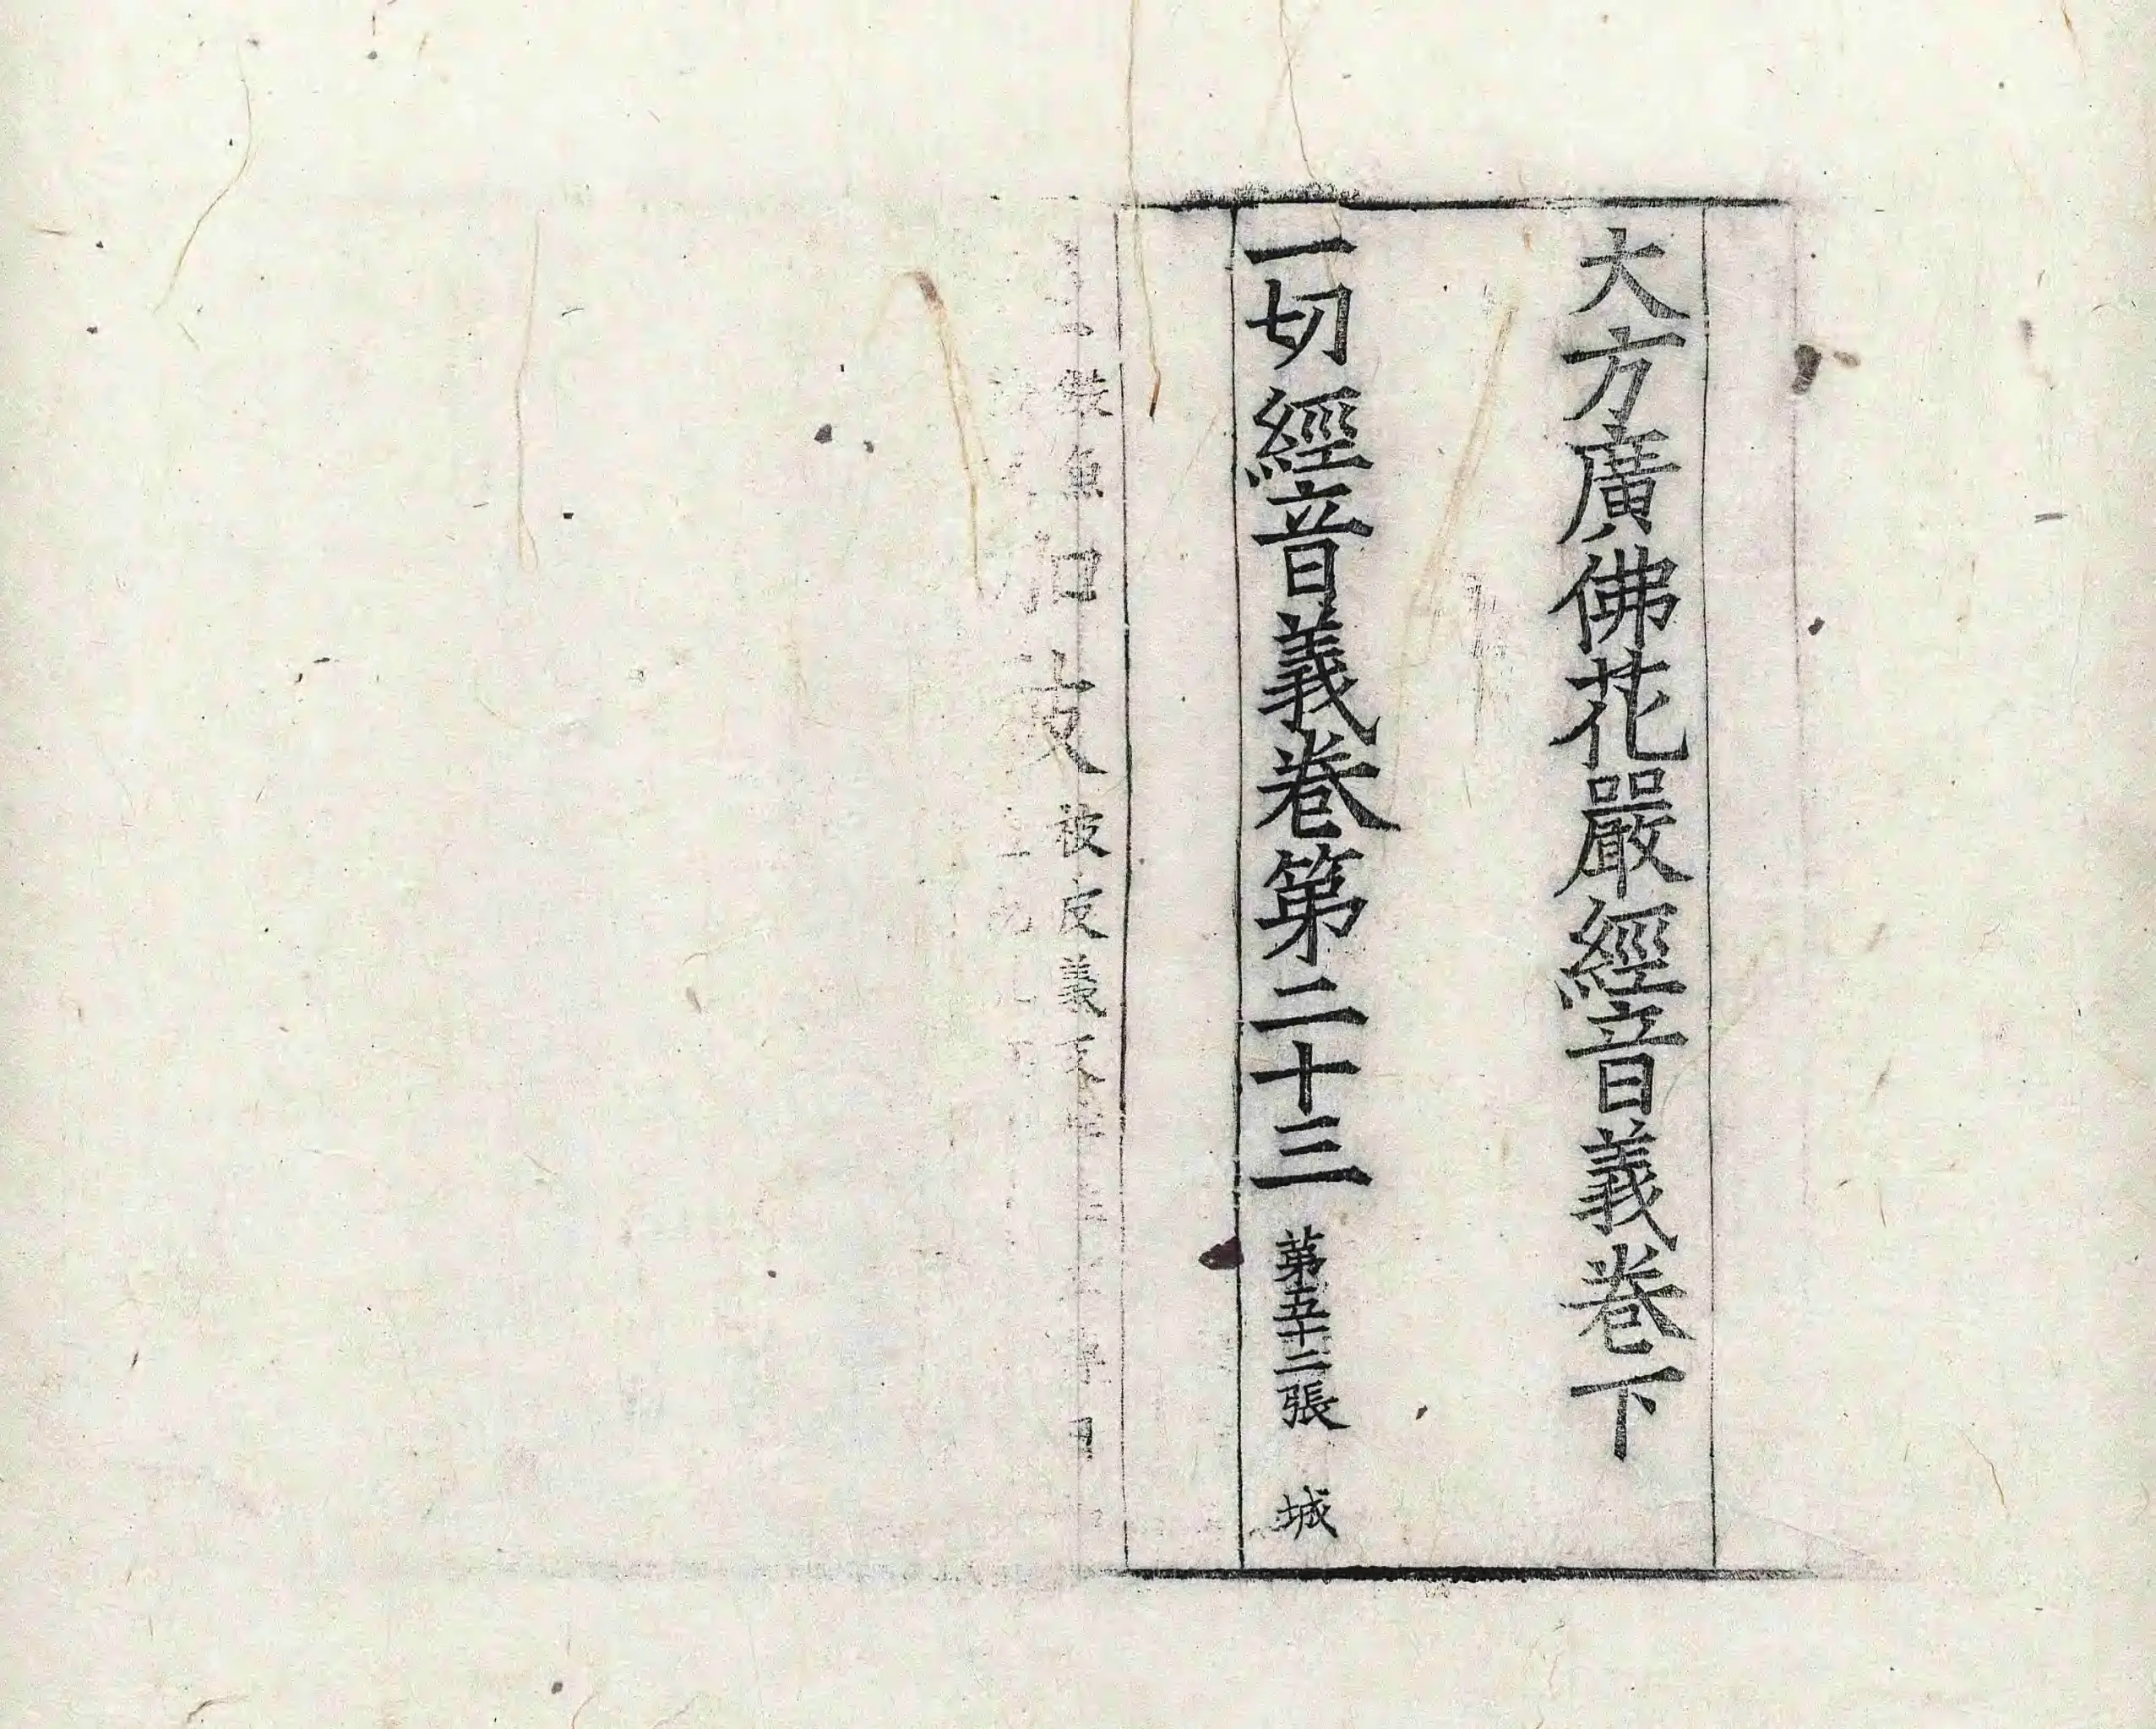 大方廣佛花嚴經音義卷下
一切經音義卷第二十三 第五十二張 城